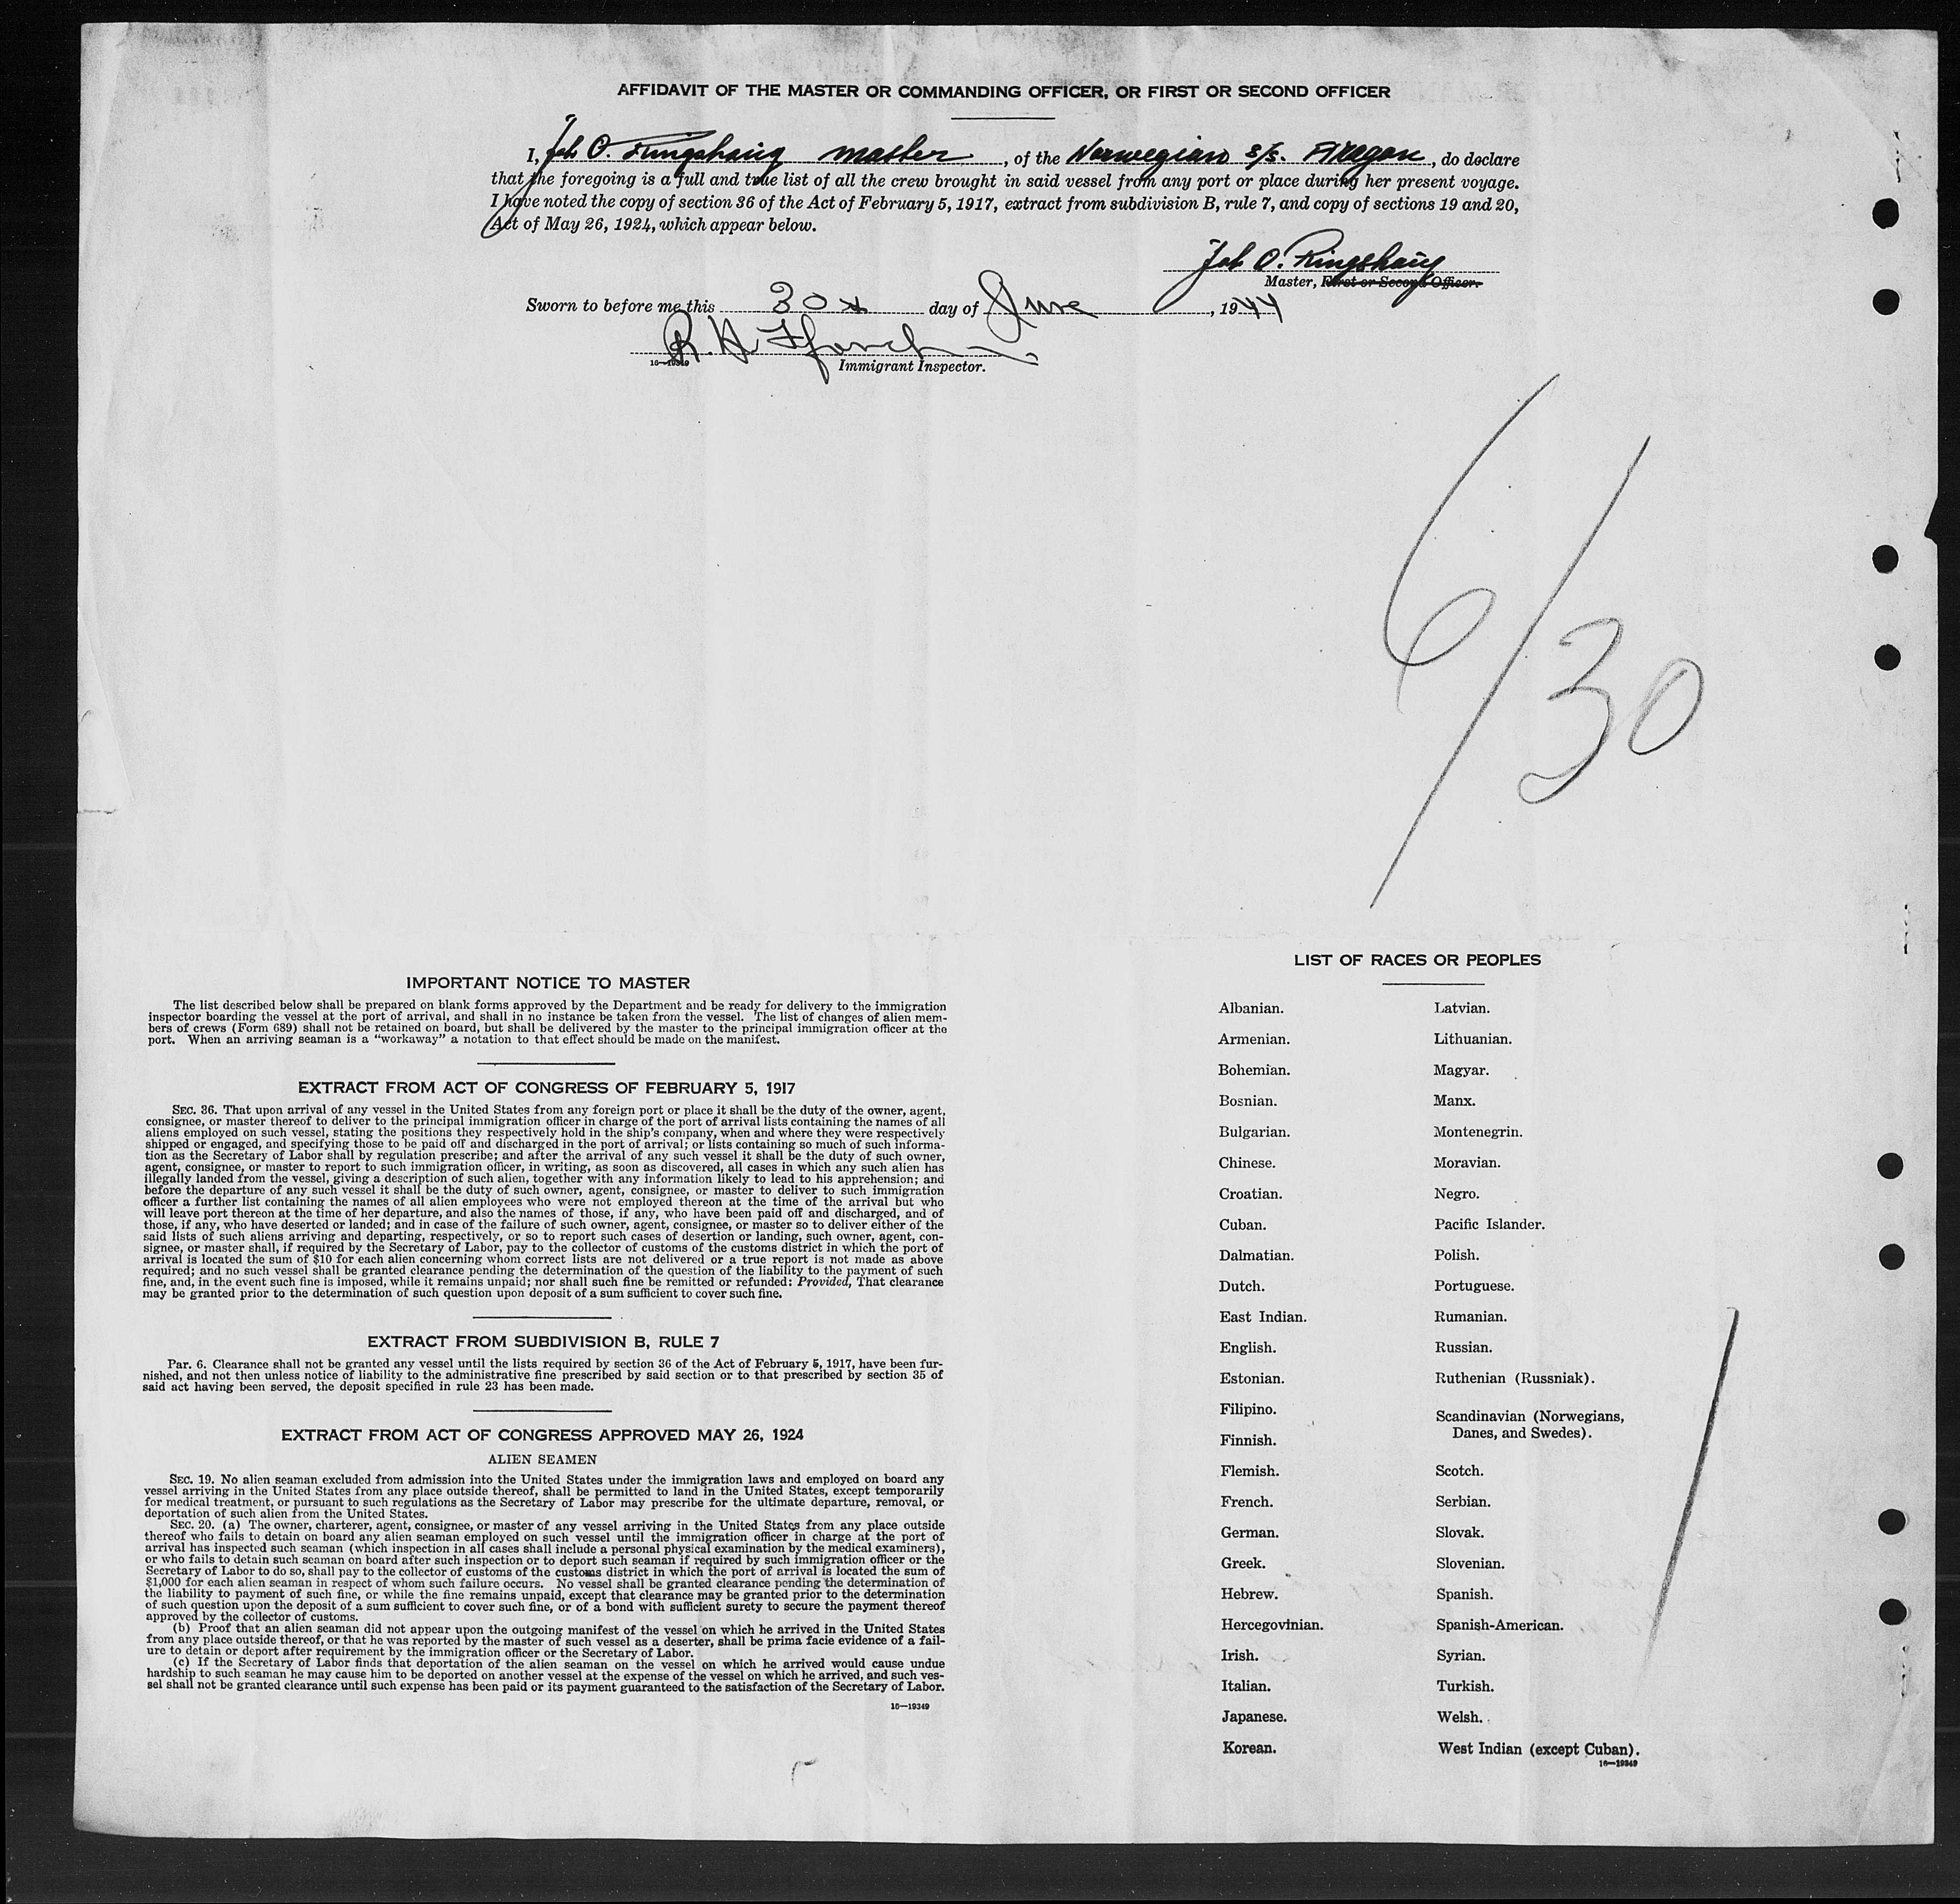 AFFIDAVIT OF THE MASTER OR COMMANDING OFFICER, OR FIRST OR SECOND OFFICER
I, O. Ringshaug master, of the Norwegian s/s., do declare
that the foregoing is a full and true list of all the crew brought in said vessel from any port or place during her present voyage.
I have noted the copy of section 36 of the Act of February 5, 1917, extract from subdivision B, rule 7, and copy of sections 19 and 20,
Act of May 26, 1924, which appear below.
O. Ringshaug
Master, First or Second Officer.
Sworn to before me this 30 day of June, 1944
R. H.
16—19349 Immigrant Inspector.
6/30
IMPORTANT NOTICE TO MASTER
The list described below shall be prepared on blank forms approved by the Department and be ready for delivery to the immigration
inspector boarding the vessel at the port of arrival, and shall in no instance be taken from the vessel. The list of changes of alien mem-
bers of crews (Form 689) shall not be retained on board, but shall be delivered by the master to the principal immigration officer at the
port. When an arriving seaman is a "workaway" a notation to that effect should be made on the manifest.
EXTRACT FROM ACT OF CONGRESS OF FEBRUARY 5, 1917
SEC. 36. That upon arrival of any vessel in the United States from any foreign port or place it shall be the duty of the owner, agent,
consignee, or master thereof to deliver to the principal immigration officer in charge of the port of arrival lists containing the names of all
aliens employed on such vessel, stating the positions they respectively hold in the ship's company, when and where they were respectively
shipped or engaged, and specifying those to be paid off and discharged in the port of arrival; or lists containing so much of such informa-
tion as the Secretary of Labor shall by regulation prescribe; and after the arrival of any such vessel it shall be the duty of such owner,
agent, consignee, or master to report to such immigration officer, in writing, as soon as discovered, all cases in which any such alien has
illegally landed from the vessel, giving a description of such alien, together with any information likely to lead to his apprehension; and
before the departure of any such vessel it shall be the duty of such owner, agent, consignee, or master to deliver to such immigration
officer a further list containing the names of all alien employees who were not employed thereon at the time of the arrival but who
will leave port thereon at the time of her departure, and also the names of those, if any, who have been paid off and discharged, and of
those, if any, who have deserted or landed; and in case of the failure of such owner, agent, consignee, or master so to deliver either of the
said lists of such aliens arriving and departing, respectively, or so to report such cases of desertion or landing, such owner, agent, con-
signee, or master shall, if required by the Secretary of Labor, pay to the collector of customs of the customs district in which the port of
arrival is located the sum of $10 for each alien concerning whom correct lists are not delivered or a true report is not made as above
required; and no such vessel shall be granted clearance pending the determination of the question of the liability to the payment of such
fine, and, in the event such fine is imposed, while it remains unpaid; nor shall such fine be remitted or refunded: Provided, That clearance
may be granted prior to the determination of such question upon deposit of a sum sufficient to cover such fine.
EXTRACT FROM SUBDIVISION B, RULE 7
Par. 6. Clearance shall not be granted any vessel until the lists required by section 36 of the Act of February 5, 1917, have been fur-
nished, and not then unless notice of liability to the administrative fine prescribed by said section or to that prescribed by section 35 of
said act having been served, the deposit specified in rule 23 has been made.
EXTRACT FROM ACT OF CONGRESS APPROVED MAY 26, 1924
ALIEN SEAMEN
SEC. 19. No alien seaman excluded from admission into the United States under the immigration laws and employed on board any
vessel arriving in the United States from any place outside thereof, shall be permitted to land in the United States, except temporarily
for medical treatment, or pursuant to such regulations as the Secretary of Labor may prescribe for the ultimate departure, removal, or
deportation of such alien from the United States.
SEC. 20. (a) The owner, charterer, agent, consignee, or master of any vessel arriving in the United States from any place outside
thereof who fails to detain on board any alien seaman employed on such vessel until the immigration officer in charge at the port of
arrival has inspected such seaman (which inspection in all cases shall include a personal physical examination by the medical examiners),
or who fails to detain such seaman on board after such inspection or to deport such seaman if required by such immigration officer or the
Secretary of Labor to do so, shall pay to the collector of customs of the customs district in which the port of arrival is located the sum of
$1,000 for each alien seaman in respect of whom such failure occurs. No vessel shall be granted clearance pending the determination of
the liability to payment of such fine, or while the fine remains unpaid, except that clearance may be granted prior to the determination
of such question upon the deposit of a sum sufficient to cover such fine, or of a bond with sufficient surety to secure the payment thereof
approved by the collector of customs.
(b) Proof that an alien seaman did not appear upon the outgoing manifest of the vessel on which he arrived in the United States
from any place outside thereof, or that he was reported by the master of such vessel as a deserter, shall be prima facie evidence of a fail-
ure to detain or deport after requirement by the immigration officer or the Secretary of Labor.
(c) If the Secretary of Labor finds that deportation of the alien seaman on the vessel on which he arrived would cause undue
hardship to such seaman he may cause him to be deported on another vessel at the expense of the vessel on which he arrived, and such ves-
sel shall not be granted clearance until such expense has been paid or its payment guaranteed to the satisfaction of the Secretary of Labor.
16—19349
LIST OF RACES OR PEOPLES
Albanian.
Armenian.
Bohemian.
Bosnian.
Bulgarian.
Chinese.
Croatian.
Cuban.
Dalmatian.
Dutch.
East Indian.
English.
Estonian.
Filipino.
Finnish.
Flemish.
French.
German.
Greek.
Hebrew.
Hercegovinian.
Irish.
Italian.
Japanese.
Korean.
Latvian.
Lithuanian.
Magyar.
Manx.
Montenegrin.
Moravian.
Negro.
Pacific Islander.
Polish.
Portuguese.
Rumanian.
Russian.
Ruthenian (Russniak).
Scandinavian (Norwegians,
Danes, and Swedes).
Scotch.
Serbian.
Slovak.
Slovenian.
Spanish.
Spanish-American.
Syrian.
Turkish.
Welsh.
West Indian (except Cuban).
16—19349